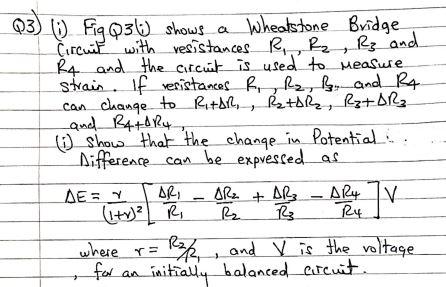 Q3) (i) Fig Q3(i) shows a Wheatstone Bridge
Circuit with resistances R₁, R₂, R₃ and
R₄ and the circuit is used to measure
strain. If resistances R₁, R₂, R₃, and R₄
can change to R₁+ΔR₁, R₂+ΔR₂, R₃+ΔR₃
and R₄+ΔR₄,
(i) Show that the change in Potential
Difference can be expressed as
ΔE = r/(1+r)² [ΔR₁/R₁ - ΔR₂/R₂ + ΔR₃/R₃ - ΔR₄/R₄] V
where r = R₂/R₁, and V is the voltage
, for an initially balanced circuit.